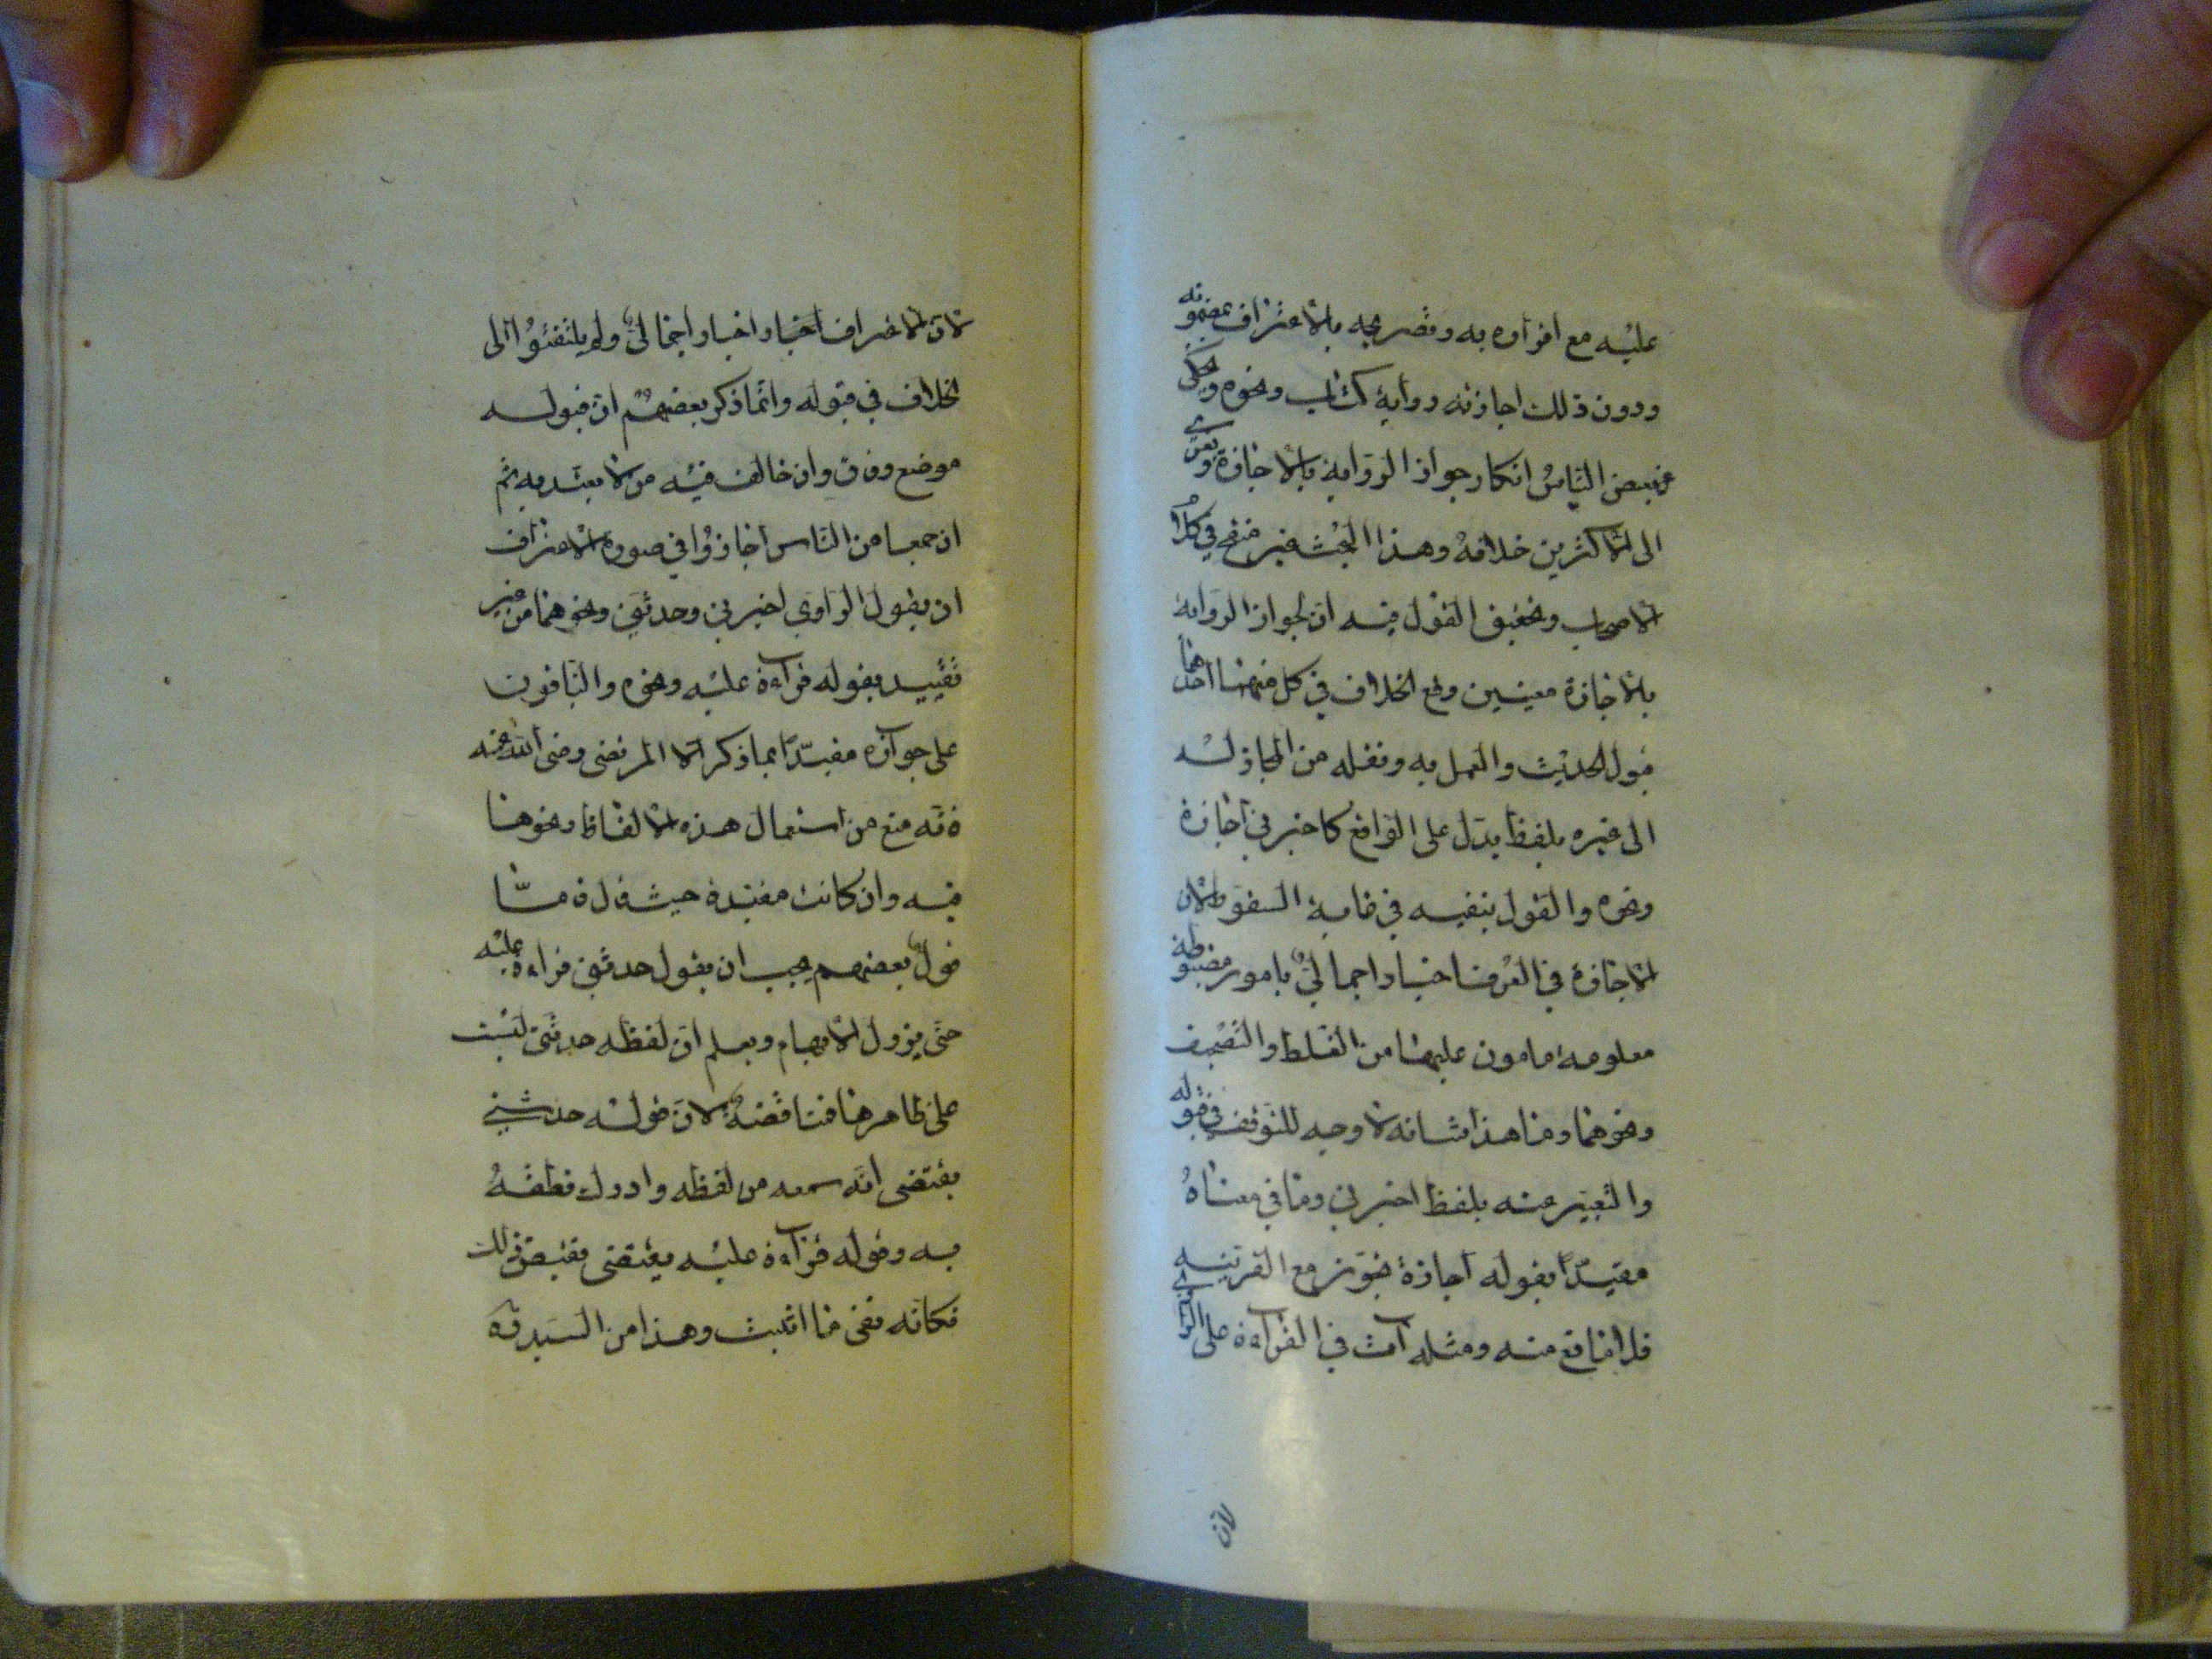 عليه مع اقراره به وتصريحه بالاعتراف بمضمونه
ودون ذلك اجازته رواية كتاب ونحوه ويحكى
عن بعض الناس انكار جواز الرواية بالاجازة ويعزى
الى الاكثرين خلافه وهذا البحث غير منقح في كلام
الاصحاب وتحقيق القول فيه ان لجواز الرواية
بالاجازة معنيين وقع الخلاف في كل منهما احدهما
قبول الحديث والعمل به ونقله من المجاز له
الى غيره بلفظ يدل على الواقع كاخبرني اجازة
ونحوه والقول بنفيه في غاية السقوط لان
الاجازة في العرف اخبار اجمالي بامور مضبوطة
معلومة مامون عليها من الغلط والتصحيف
ونحوهما وما هذا شانه لا وجه للتوقف في قبوله
والتعبير عنه بلفظ اخبرني وما في معناه
مقيدا بقوله اجازة تجوز مع القرينة
فلا مانع منه ومثله آت في القرآءة على الراوي
لان
لان الاعتراف اخبار اجمالي ولم يلتفتوا الى
الخلاف في قبوله وانما ذكر بعضهم ان قبوله
موضع وفاق وان خالف فيه من لا يعتد به ثم
ان جمعا من الناس اجازوا في صورة الاعتراف
ان يقول الراوي اخبرني وحدثني ونحوهما من غير
تقييد بقوله قرآءة عليه ونحوه والباقون
على جوازه مقيدا بما ذكر الا المرتضى رضي الله عنه
فانه منع من استعمال هذه الالفاظ ونحوها
فيه وان كانت مقيدة حيث قال فاما
قول بعضهم يجب ان يقول حدثني قراءة عليه
حتى يزول الابهام ويعلم ان لفظه حدثني ليست
على ظاهرها فمناقضة لان قوله حدثني
يقتضي انه سمعه من لفظه وادرك نطقه
به وقوله قرآءة عليه يقتضي نقيض ذلك
فكانه نفى ما اثبت وهذا من السيد ره